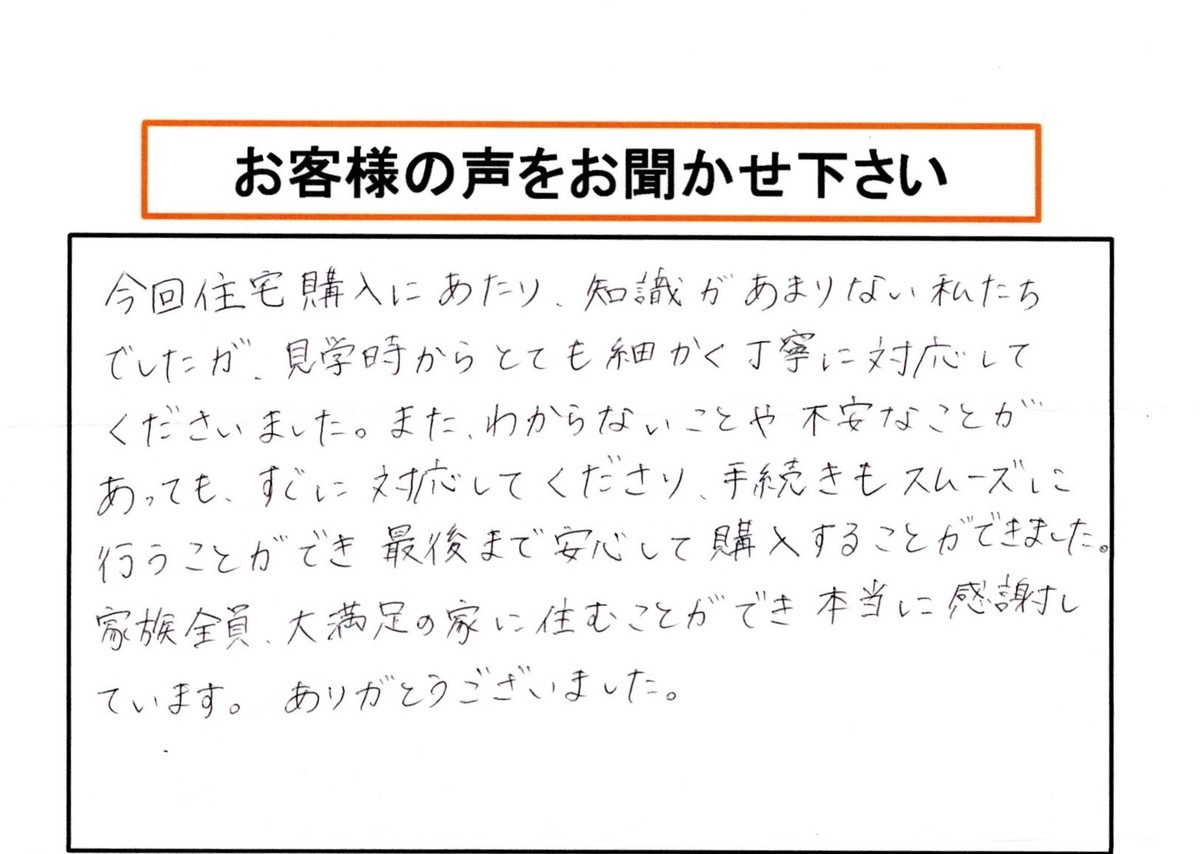 お客様の声をお聞かせ下さい
今回住宅購入にあたり、知識があまりない私たち
でしたが、見学時からとても細かく丁寧に対応して
くださいました。また、わからないことや不安なことが
あっても、すぐに対応してくださり、手続きもスムーズに
行うことができ最後まで安心して購入することができました。
家族全員、大満足の家に住むことができ本当に感謝し
ています。ありがとうございました。